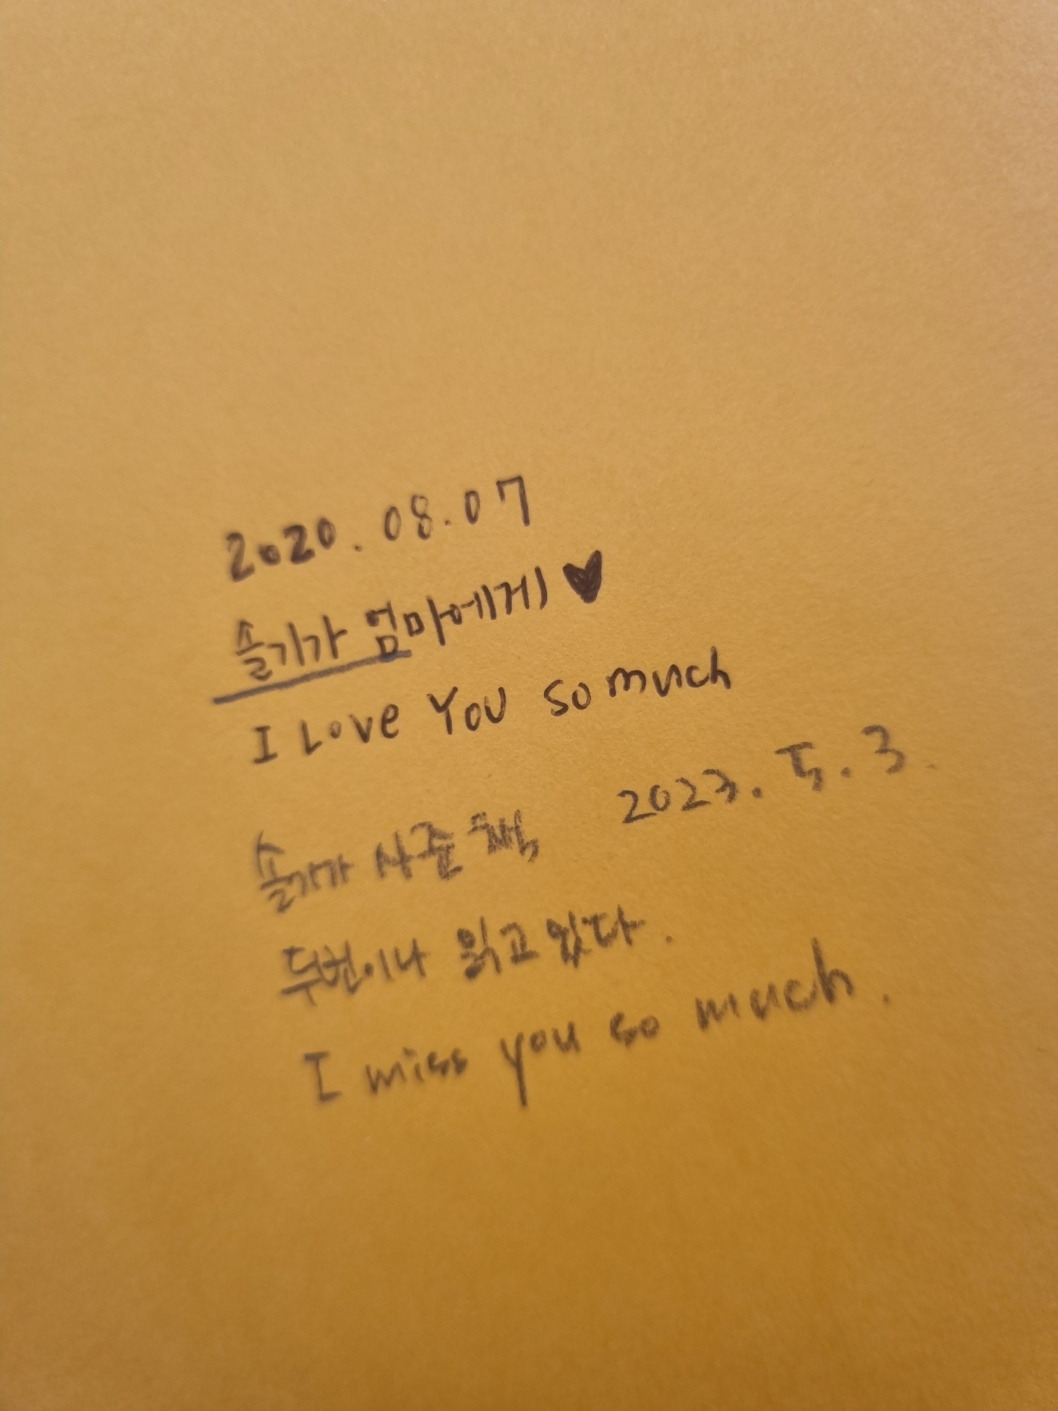 2020.08.07
솔기가 엄마에게 ♥
I Love You so much
2023. 5. 3.
솔기가 사준 책
두번이나 읽고 있다.
I miss you so much.